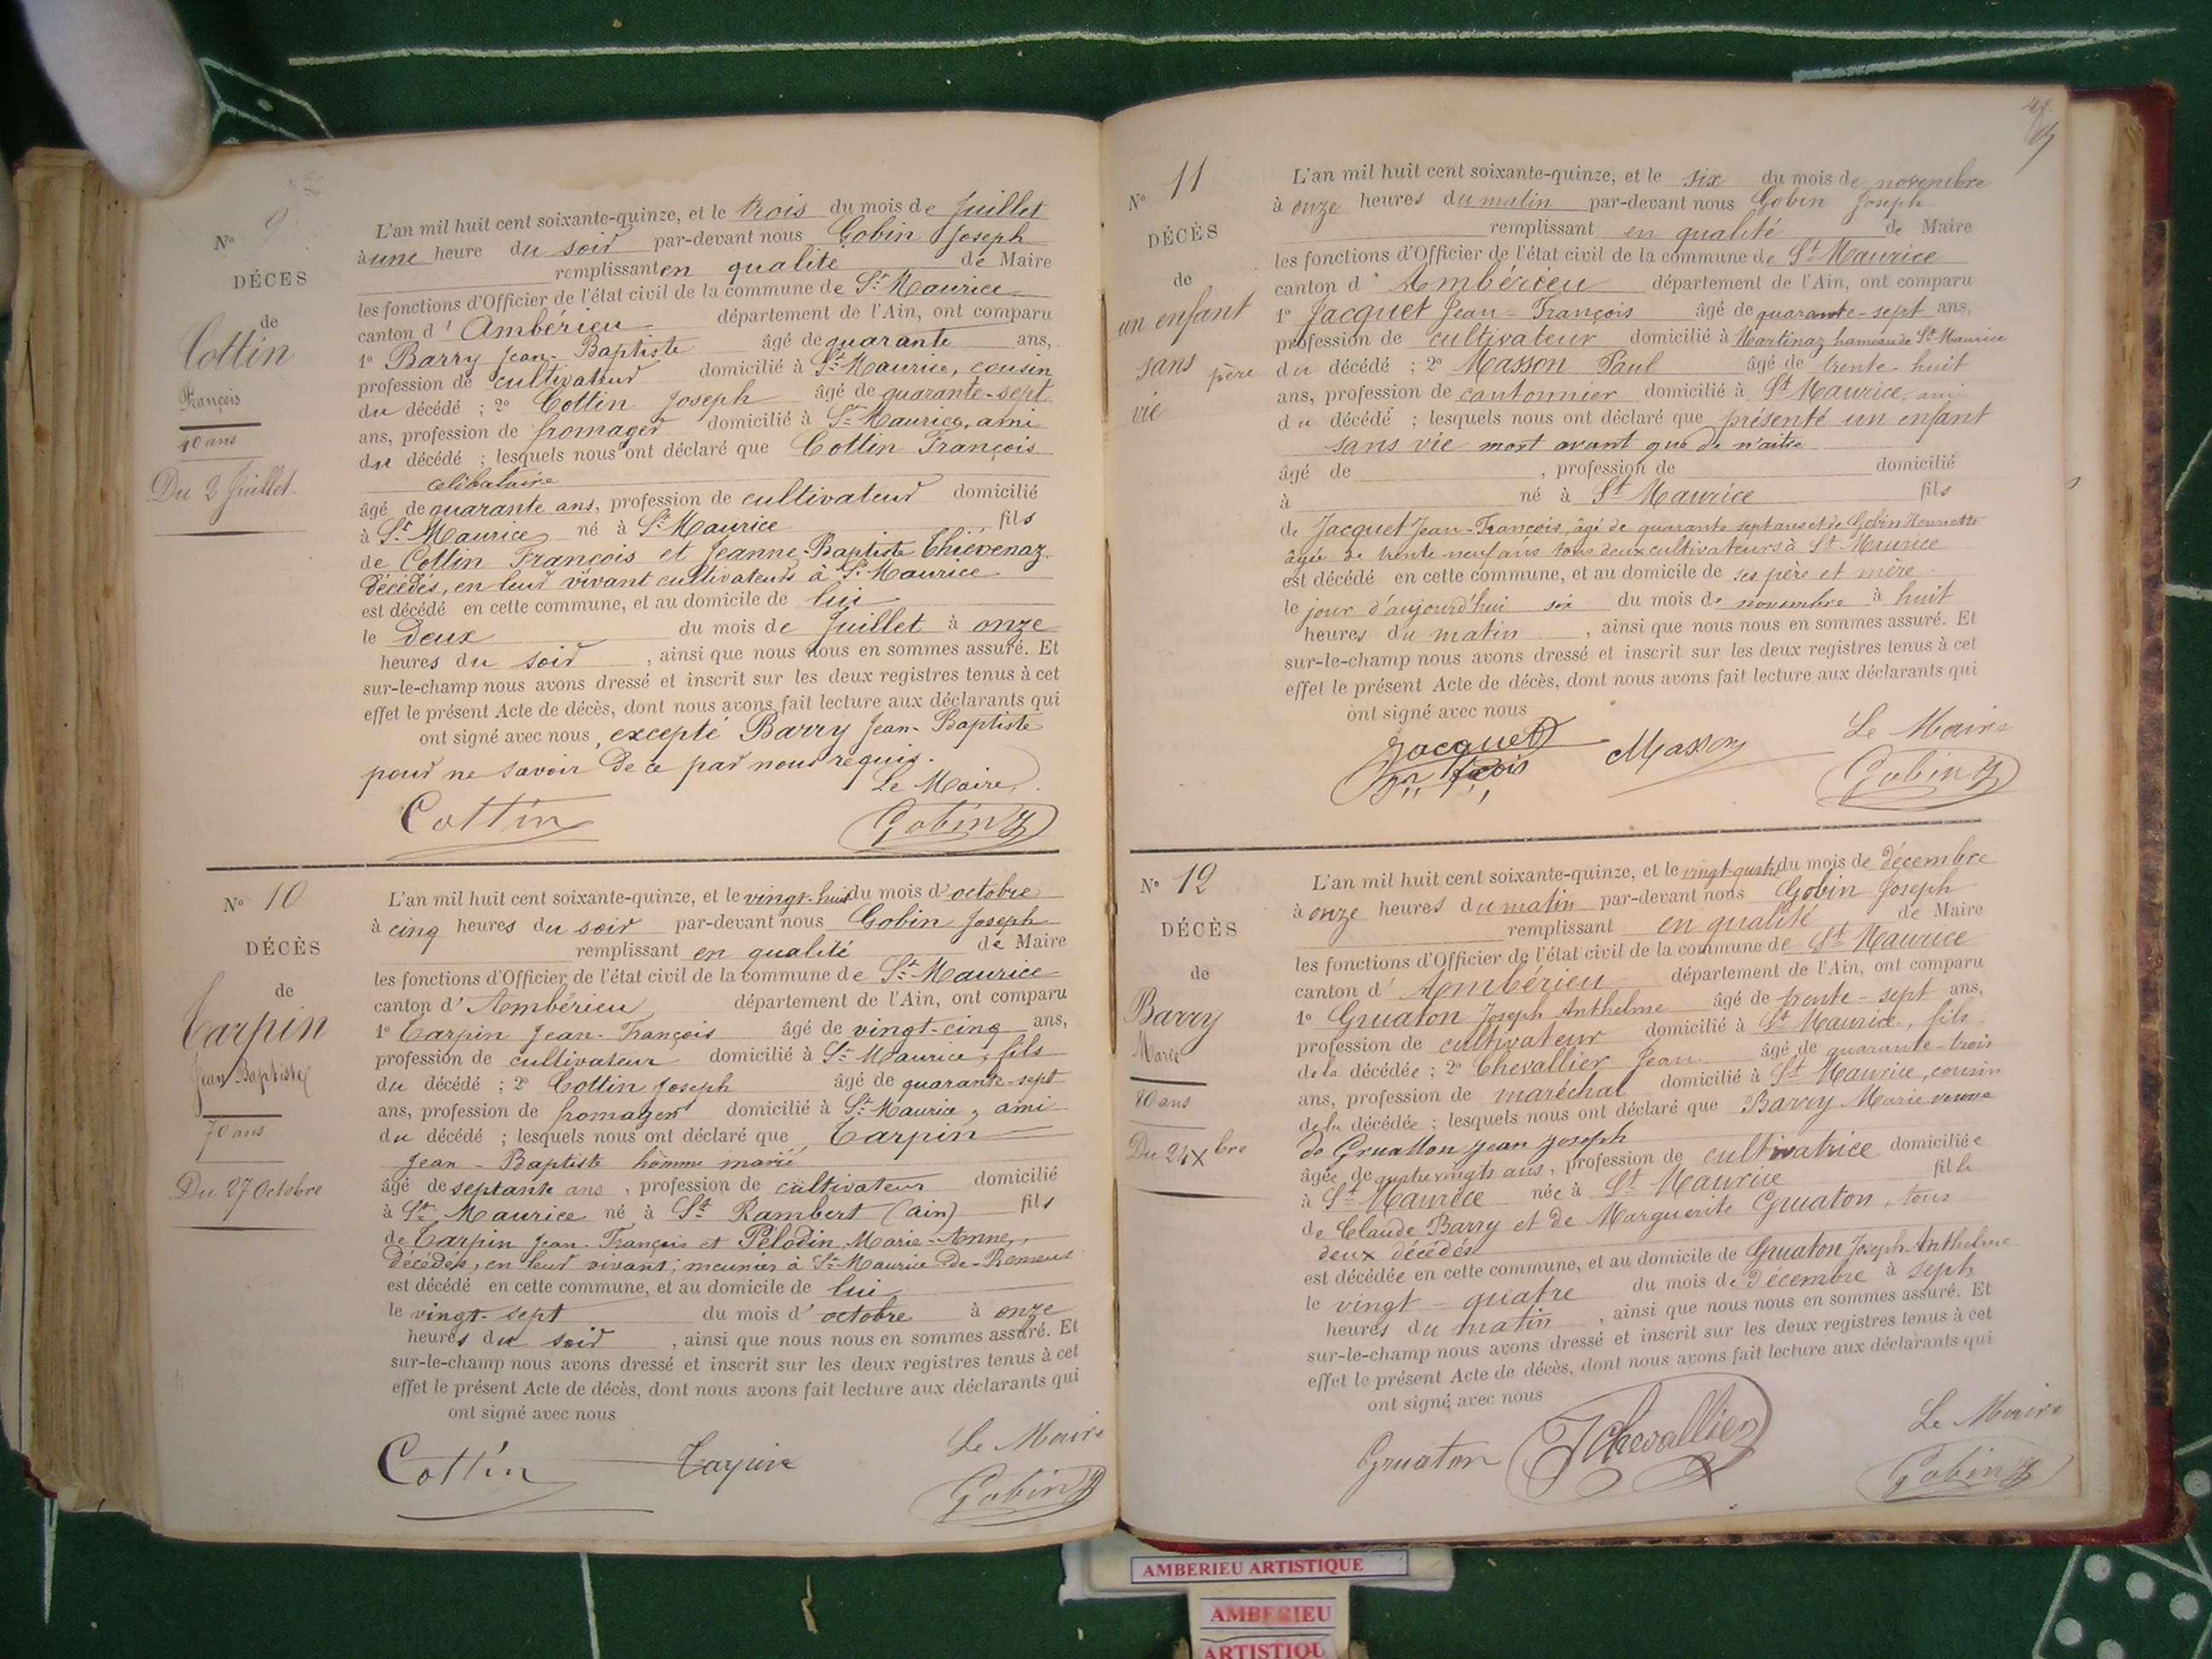 N° 9
DÉCES
de
Cottin
François
40 ans
Du 2 Juillet.
L'an mil huit cent soixante-quinze, et le trois du mois de Juillet
à une heure du soir par-devant nous Gobin Joseph
remplissant en qualité de Maire
les fonctions d'Officier de l'état civil de la commune de St Maurice
canton d' Ambérieu département de l'Ain, ont comparu
1° Barry Jean-Baptiste âgé de quarante ans,
profession de cultivateur domicilié à St Maurice, cousin
du décédé ; 2° Cottin Joseph âgé de quarante-sept
ans, profession de fromager domicilié à St Maurice, ami
du décédé ; lesquels nous ont déclaré que Cottin François
celibataire
âgé de quarante ans, profession de cultivateur domicilié
à St Maurice né à St Maurice fils
de Cottin François et Jeanne-Baptiste Thievenaz
décédés, en leur vivant cultivateurs à St Maurice
est décédé en cette commune, et au domicile de lui
le Deux du mois de Juillet à onze
heures du soir , ainsi que nous nous en sommes assuré. Et
sur-le-champ nous avons dressé et inscrit sur les deux registres tenus à cet
effet le présent Acte de décès, dont nous avons fait lecture aux déclarants qui
ont signé avec nous, excepté Barry Jean-Baptiste
pour ne savoir de ce par nous requis.
Le Maire,
Cottin Gobin J
N° 10
DÉCÈS
de
Tarpin
Jean-Baptiste
70 ans
Du 27 Octobre
L'an mil huit cent soixante-quinze, et le vingt-huit du mois d'octobre
à cinq heures du soir par-devant nous Gobin Joseph
remplissant en qualité de Maire
les fonctions d'Officier de l'état civil de la commune de St Maurice
canton d' Ambérieu département de l'Ain, ont comparu
1° Tarpin Jean-François âgé de vingt-cinq ans,
profession de cultivateur domicilié à St Maurice, fils
du décédé ; 2° Cottin Joseph âgé de quarante-sept
ans, profession de fromager domicilié à St Maurice, ami
du décédé ; lesquels nous ont déclaré que Tarpin
Jean-Baptiste homme marié
âgé de septante ans , profession de cultivateur domicilié
à St Maurice né à St Rambert (Ain) fils
de Tarpin Jean-François et Pélodin Marie-Anne,
décédés, en leur vivant, meunier à St Maurice-De-Remens
est décédé en cette commune, et au domicile de lui
le vingt-sept du mois d' octobre à onze
heures du soir , ainsi que nous nous en sommes assuré. Et
sur-le-champ nous avons dressé et inscrit sur les deux registres tenus à cet
effet le présent Acte de décès, dont nous avons fait lecture aux déclarants qui
ont signé avec nous
Le Maire
Cottin Tarpin Gobin J
N° 11
DÉCÈS
de
un enfant
sans père
vie
L'an mil huit cent soixante-quinze, et le six du mois de novembre
à onze heures du matin par-devant nous Gobin Joseph
remplissant en qualité de Maire
les fonctions d'Officier de l'état civil de la commune de St Maurice
canton d' Ambérieu département de l'Ain, ont comparu
1° Jacquet Jean-François âgé de quarante-sept ans,
profession de cultivateur domicilié à Martinaz hameau de St Maurice
du décédé ; 2° Masson Paul âgé de trente-huit
ans, profession de cantonnier domicilié à St Maurice, ami
du décédé ; lesquels nous ont déclaré que présenté un enfant
sans vie mort avant que de n'aitre
âgé de , profession de domicilié
à né à St Maurice fils
de Jacquet Jean-François, âgé de quarante sept ans et de Gobin Henriette
âgée de trente neuf ans tous deux cultivateurs à St Maurice
est décédé en cette commune, et au domicile de ses père et mère
le jour d'aujourd'hui six du mois de novembre à huit
heures du matin , ainsi que nous nous en sommes assuré. Et
sur-le-champ nous avons dressé et inscrit sur les deux registres tenus à cet
effet le présent Acte de décès, dont nous avons fait lecture aux déclarants qui
ont signé avec nous
Le Maire
Jacquet Masson Gobin J
N° 12
DÉCÈS
de
Barry
Marie
80 ans
Du 24 Xbre
L'an mil huit cent soixante-quinze, et le vingt-quatre du mois de décembre
à onze heures du matin par-devant nous Gobin Joseph
remplissant en qualité de Maire
les fonctions d'Officier de l'état civil de la commune de St Maurice
canton d' Ambérieu département de l'Ain, ont comparu
1° Gruaton Joseph Anthelme âgé de trente-sept ans,
profession de cultivateur domicilié à St Maurice, fils
de la décédée ; 2° Chevallier Jean âgé de quarante-trois
ans, profession de maréchal domicilié à St Maurice, cousin
de la décédée ; lesquels nous ont déclaré que Barry Marie veuve
de Gruatton Jean Joseph
âgée de quatre vingts ans, profession de cultivatrice domiciliée
à St Maurice née à St Maurice fille
de Claude Barry et de Marguerite Gruaton, tous
deux décédés
est décédée en cette commune, et au domicile de Gruaton Joseph Anthelme
le vingt-quatre du mois de décembre à sept
heures du matin , ainsi que nous nous en sommes assuré. Et
sur-le-champ nous avons dressé et inscrit sur les deux registres tenus à cet
effet le présent Acte de décès, dont nous avons fait lecture aux déclarants qui
ont signé avec nous
Le Maire
Gruaton J Chevallier Gobin J
AMBERIEU ARTISTIQUE
AMBERIEU
ARTISTIQU